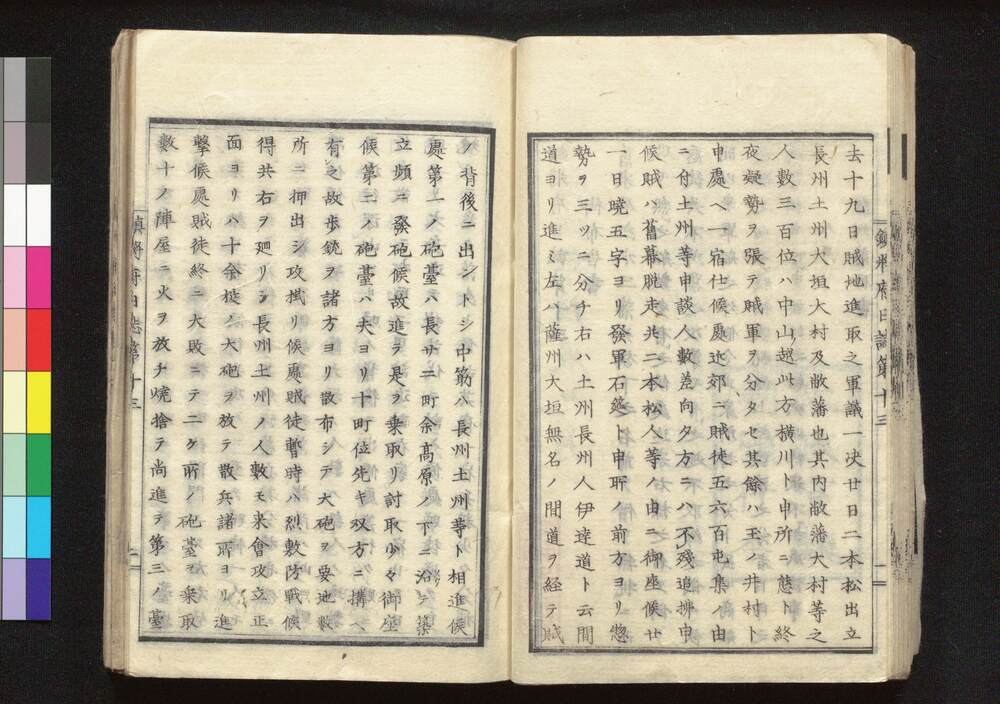 鎮将府日誌第十三
去十九日賊地進取之軍議一决廿日二本松出立
長州土州大垣大村及敝藩也其内敝藩大村等之
人数三百位ハ中山越此方横川ト申所ニ態ト終
夜疑勢ヲ張テ賊軍ヲ分タセ其餘ハ玉ノ井村ト
申處ヘ一宿仕候處近郊ニ賊徒五六百屯集ノ由
ニ付土州等申談人數差向夕方ニハ不残追拂申
候賊ハ舊幕脱走共二本松人等ノ由ニ御座候廿
一日暁五字ヨリ發軍石筵ト申所ノ前方ヨリ惣
勢ヲ三ツニ分チ右ハ土州長州人伊達道ト云間
道ヨリ進ミ左ハ薩州大垣無名ノ間道ヲ経テ賊
ノ背後ニ出ントシ中筋ハ長州土州等ト相進候
處第一ノ砲䑓ハ長サ二町余高原ノ下ニ沿テ築
立頻ニ發砲候故進テ是ヲ乗取リ討取少々御座
候第二ノ砲臺ハ夫ヨリ十町位先キ双方ニ搆ヘ
有之故歩銃ヲ諸方ヨリ散布シテ大砲ヲ要地数
所ニ押出シ攻撃リ候處賊徒暫時ハ烈敷防戦候
得共右ヲ廻リシ長州土州ノ人數モ来會攻立正
面ヨリハ十余挺ノ大砲ヲ放テ散兵諸所ヨリ進
撃候處賊徒終ニ大敗ニテ二ケ所ノ砲臺ヲ乗取
數十ノ陣屋ニ火ヲ放チ焼捨テ尚進テ第三ノ臺
鎮将府日誌第十三